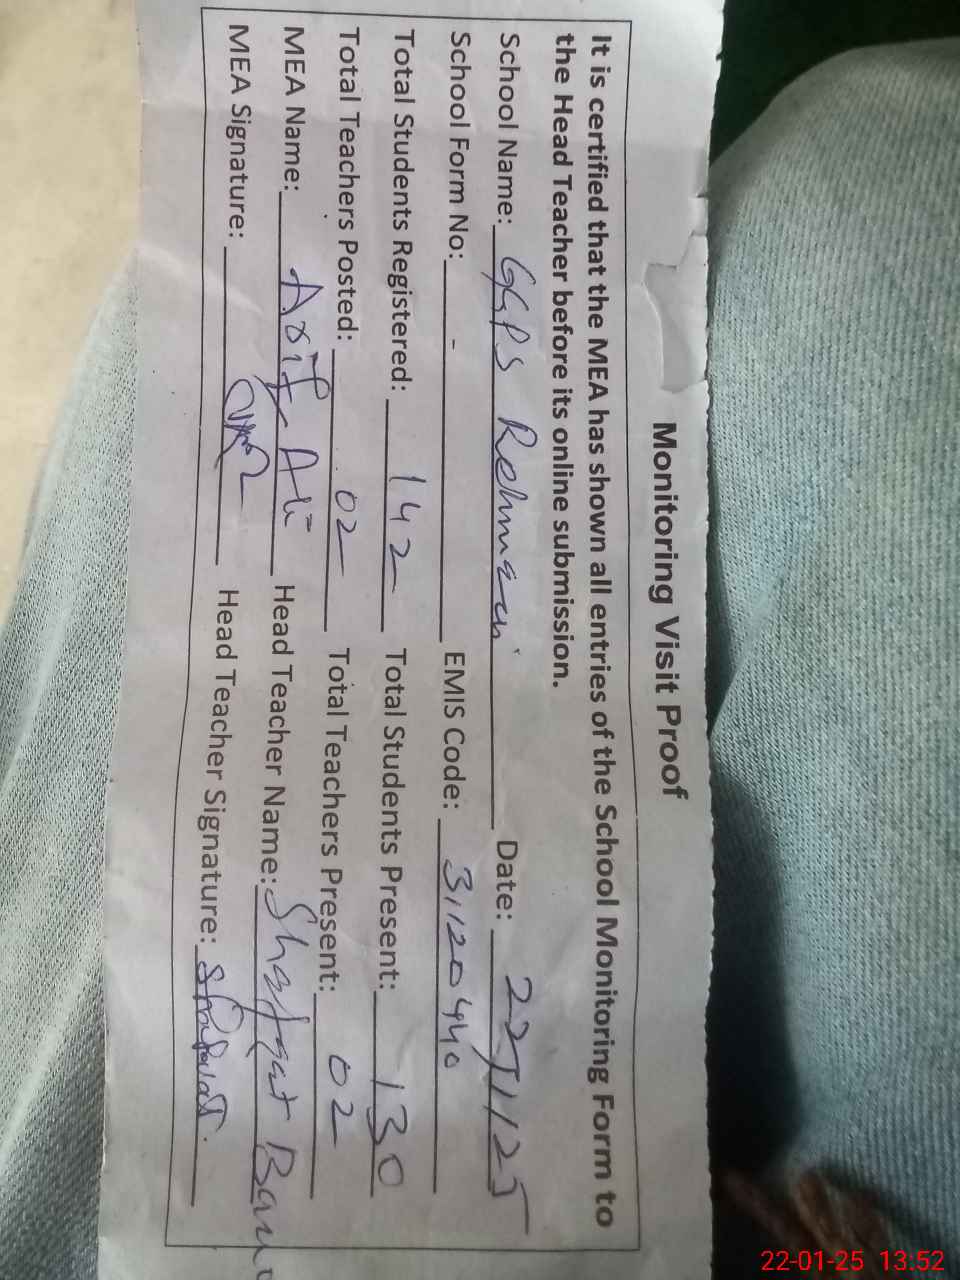 Monitoring Visit Proof
It is certified that the MEA has shown all entries of the School Monitoring Form to
the Head Teacher before its online submission.
School Name: GGPS Rehmani Date: 22/1/25
School Form No: - EMIS Code: 31120440
Total Students Registered: 142 Total Students Present: 130
Total Teachers Posted: 02 Total Teachers Present: 02
MEA Name: Asif Ali Head Teacher Name: Shafqat Bano
MEA Signature: Head Teacher Signature: Shafqat
22-01-25 13:52